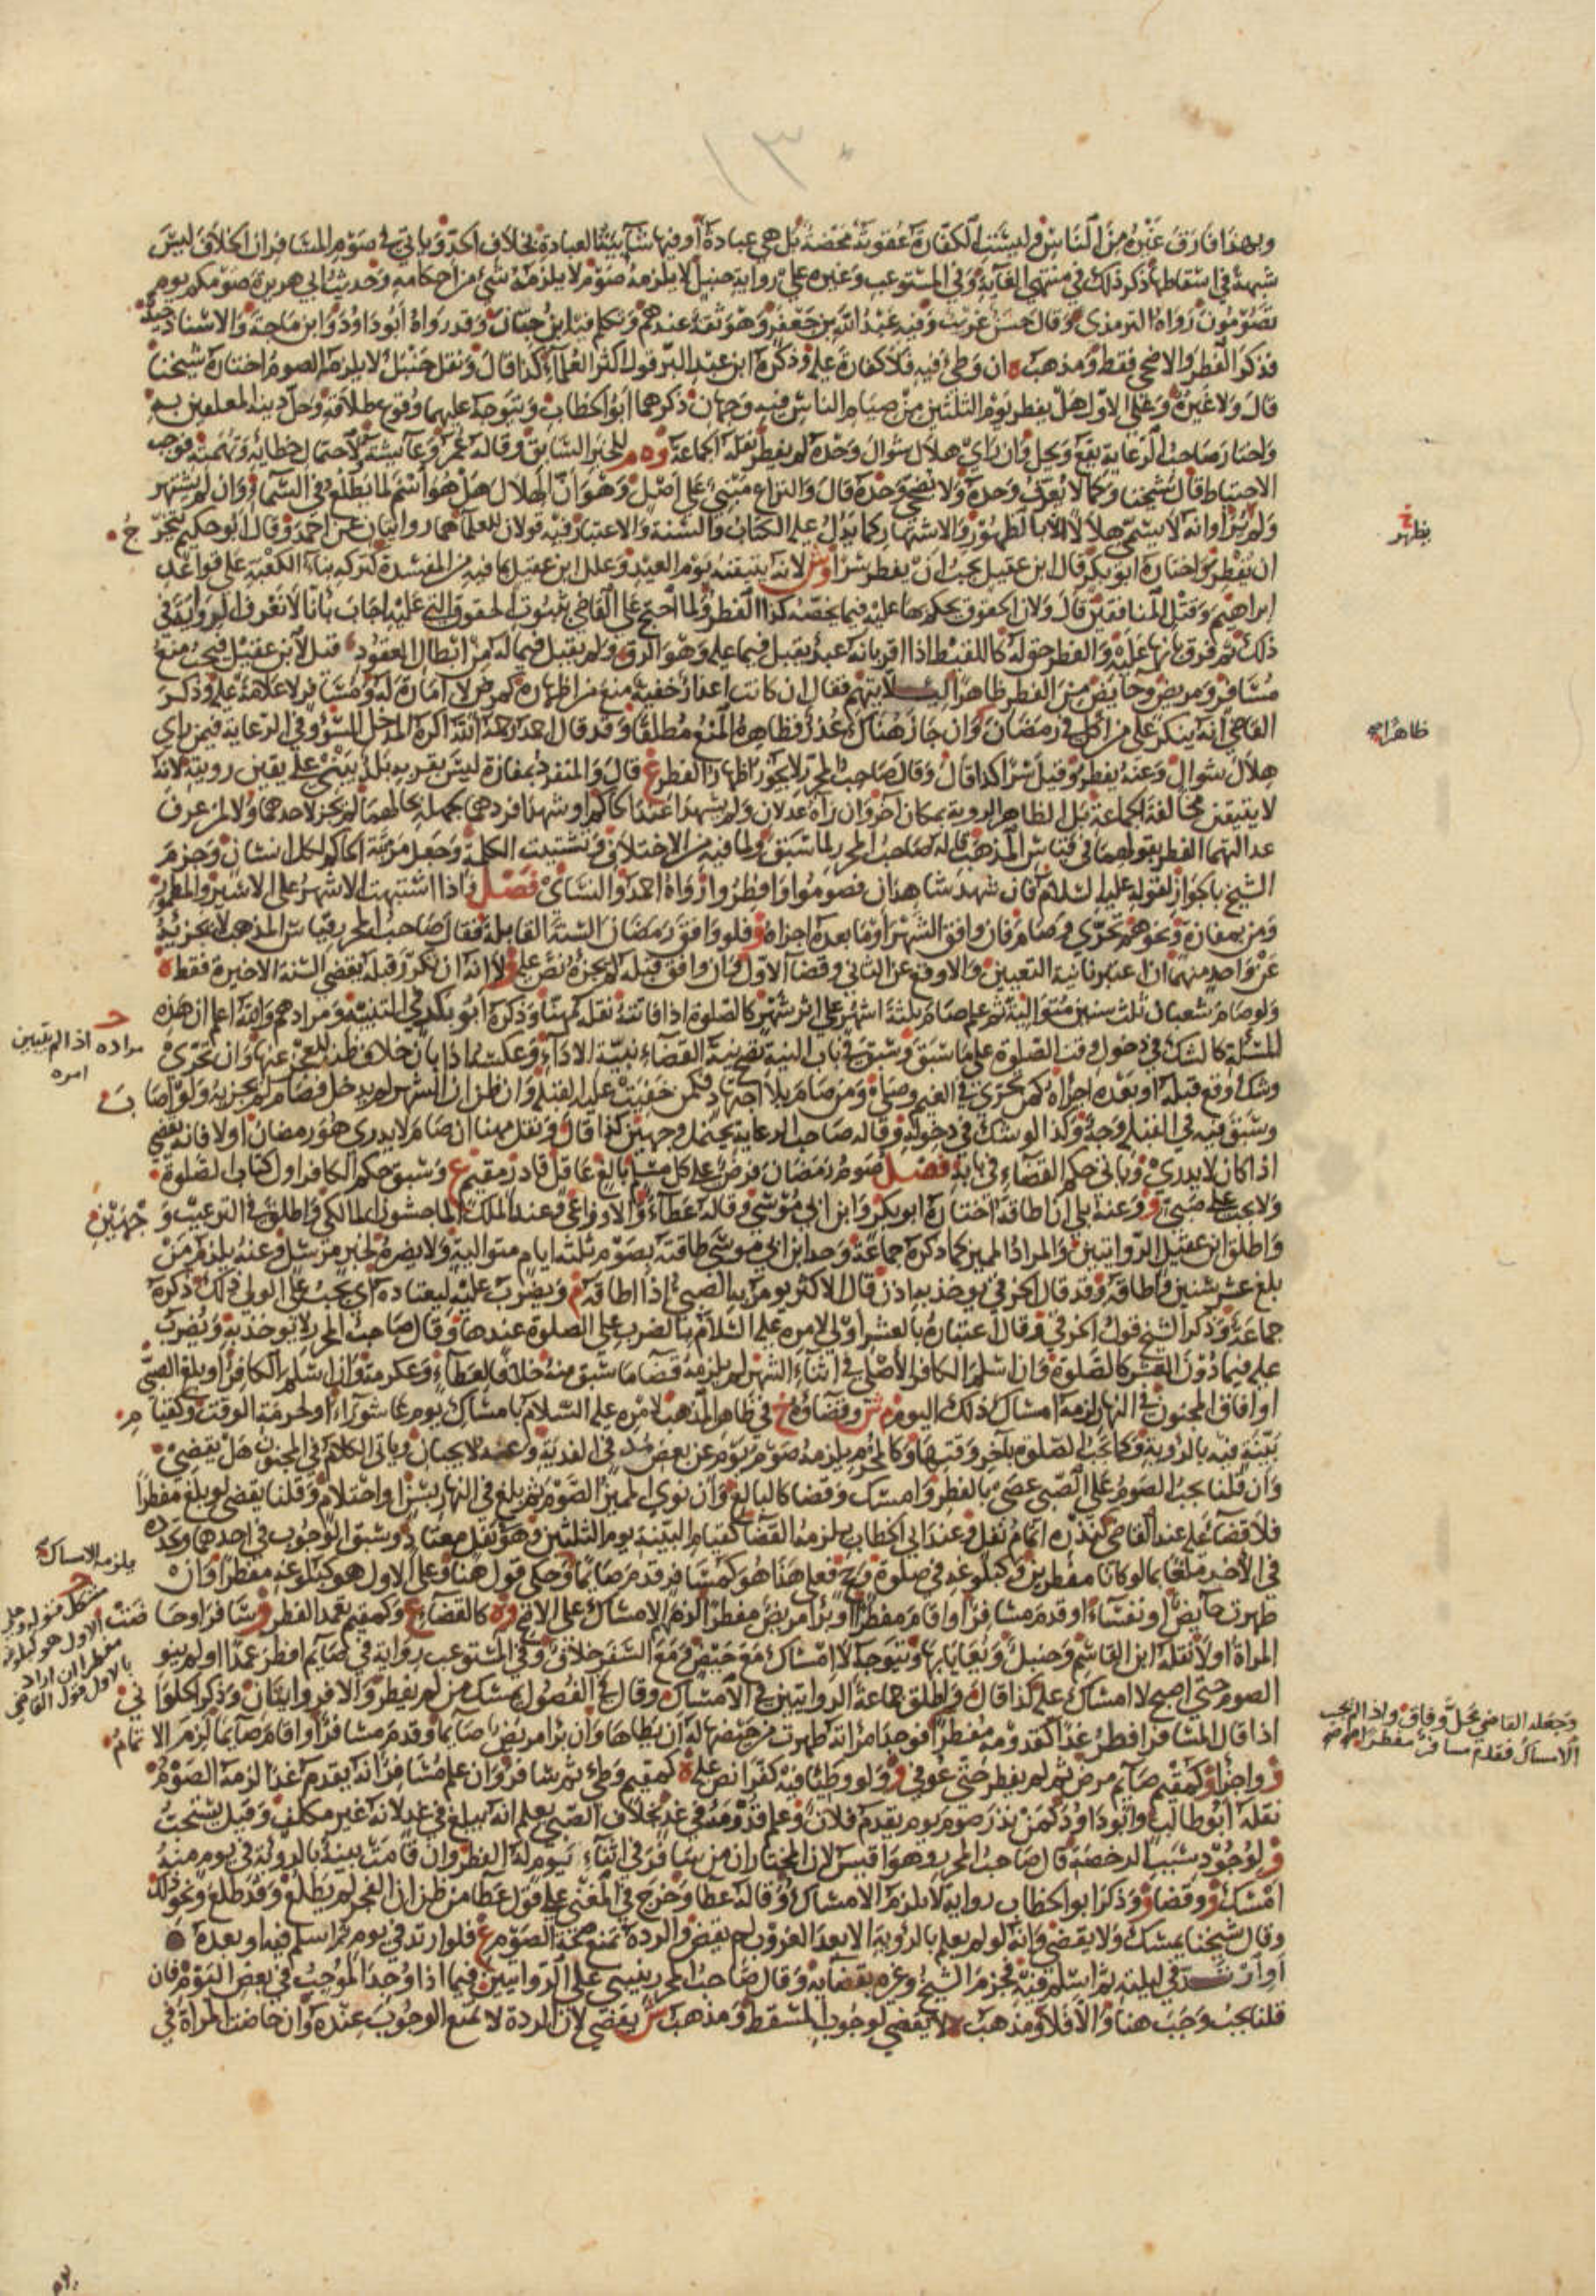 وبهذا فارق غيره من الناس وليست الكفارة عقوبة محضة بل هي عبادة او فيها شائبة العبادة بخلاف الحد وياتي في صوم المسافر ان الخلاف ليس
شبهة في اسقاطها ذكر ذلك في منتهى الغاية وفي المستوعب وغيره على رواية حنبل لا يلزمه صوم لا يلزمه شي من احكامه وحديث ابي هريرة صومكم يوم
تصومون رواه الترمذي وقال حسن غريب وفيه عبد الله بن جعفر وهو ثقة عندهم وتكلم فيه ابن حبان وقد رواه ابو داود وابن ماجة والاسناد جيد
فذكر الفطر والاضحى فقط ومذهب ه ان وطئ فيه فلا كفارة عليه وذكره ابن عبد البر قول اكثر العلماء كذا قال ونقل حنبل لا يلزمه الصوم اختاره شيخنا
قال ولا غيره وعلى الاول هل يفطر يوم الثلثين من صيام الناس فيه وجهان ذكرهما ابو الخطاب ويتوجه عليهما وقوع طلاقه وحل دينه المعلقين به
واختار صاحب الرعاية يقع ويحل وان راى هلال شوال وحده لم يفطر نقله الجماعة و ه م للخبر السابق وقاله عمر وعائشة لاحتمال خطائه وتهمته فوجب
الاحتياط قال شيخنا وكما لا يعرف وحده ولا يضحي وحده قال والنزاع مبني على اصل وهو ان الهلال هل هو اسم لما يطلع في السماء وان لم يشتهر
ولم ير او انه لا يسمى هلالا الا بالظهور والاشتهار كما يدل عليه الكتاب والسنة والاعتبار فيه قولان للعلماء هما روايتان عن احمد وقال ابو حكيم يتخرج
ان يفطر واختاره ابو بكر قال ابن عقيل يجب ان يفطر سرا وش لانه يتيقنه يوم العيد وعلل ابن عقيل بما فيه من المفسدة كتركه بناء الكعبة على قواعد
ابراهيم وقتل المنافقين قال ولان الحقوق يحكم بها عليه فيما يخصه كذا الفطر ولما احتج على القاضي بثبوت الحقوق التي عليه اجاب بانا لا نعرف الرواية في
ذلك ثم فرق بانها عليه والفطر حق له كاللقيط اذا اقر بانه عبد يقبل فيما عليه وهو الرق ولم يقبل فيما له من ابطال العقود قيل لابن عقيل فيجب منع
مسافر ومريض وحائض من الفطر ظاهرا ليلا يتهم فقال ان كانت اعذار خفية منع من اظهاره كمرض لا امارة له ومسافر لا علامة عليه وذكر
القاضي انه ينكر على من اكل في رمضان وان جاز هناك عذر فظاهره المنع مطلقا وقد قال احمد رحمه الله اكره المدخل السوء وفي الرعاية فيمن راى
هلال شوال وعنه يفطر وقيل سرا كذا قال وقال صاحب المحرر لا يجوز اظهار الفطر ع قال والمنفرد بمفازة ليس بقربه بلد يبني على يقين رويته لانه
لا يتيقن مخالفة الجماعة بل الظاهر الروية بمكان اخر وان راه عدلان ولم يشهدا عند الحاكم او شهدا فردهما لجهله بحالهما لم يجز لاحدهما ولا لمن عرف
عدالتهما الفطر بقولهما في قياس المذهب قاله صاحب المحرر لما سبق ولما فيه من الاختلاف وتشتيت الكلمة وجعل مرتبة الحاكم لكل انسان وجزم
الشيخ بالجواز لقوله عليه السلام فان شهد شاهدان فصوموا وافطروا رواه احمد والنسائي فصل واذا اشتبهت الاشهر على الاسير والمطمور
ومن بمفازة ونحوهم تحرى وصام فان وافق الشهر او ما بعده اجزاه و فلو وافق رمضان السنة القابلة فقال صاحب المحرر قياس المذهب لا يجزئه
عن واحد منهما ان اعتبرنا نية التعيين والا وقع عن الثاني وقضا الاول وان وافق قبله لم يجزه نص عليه و لا انه ان تكرر وقبله يقضي السنة الاخيرة فقط ه
ولو صام شعبان ثلث سنين متوالية ثم علم صام ثلثة اشهر على اثر شهر كالصلوة اذا فاتته نقله مهنا وذكره ابو بكر في التنبيه ومرادهم والله اعلم ان هذه
المسئلة كالشك في دخول وقت الصلوة على ما سبق وسبق في باب النية تصح نية القضاء بنية الاداء وعكسه اذا بان خلاف ظنه للعجز عنها وان تحرى
وشك اوقع قبله او بعده اجزاه كمن تحرى في الغيم وصلى ومن صام بلا اجتهاد فكمن خفيت عليه القبلة وان ظن ان الشهر لم يدخل فصام لم يجزيه ولو اصاب
وسبق فيه في القبلة وجه وكذا لو شك في دخوله وقاله صاحب الرعاية يحتمل وجهين كذا قال ونقل مهنا ان صام لا يدري هو رمضان او لا فانه يقضي
اذا كان لا يدري وياتي حكم القضاء في بابه فصل صوم رمضان فرض على كل مسلم بالغ عاقل قادر مقيم ع وسبق حكم الكافر اول كتاب الصلوة
ولا يجب على صبي و وعنه بلى ان اطاقه اختاره ابو بكر وابن ابي موسى وقاله عطاء والاوزاعي وعبد الملك بن الماجشون المالكي واطلق في الترغيب وجهين
واطلق ابن عقيل الروايتين والمراد المميز كما ذكره جماعة وحد ابن ابي موسى طاقته بصوم ثلثة ايام متوالية ولا يضره لخبر مرسل وعنه يلزم من
بلغ عشر سنين واطاقه وقد قال الخرقي يوخذ به اذن قال الاكثر يومر به الصبي اذا اطاقه م ويضرب عليه ليعتاده اي يجب على الولي ذلك ذكره
جماعة وذكر الشيخ قول الخرقي وقال اعتباره بالعشر اولى لامره عليه السلام بالضرب على الصلوة عندها وقال صاحب المحرر لا يوخذ به ويضرب
عليه فيما دون العشر كالصلوة وان اسلم الكافر الاصلي في اثناء الشهر لم يلزمه قضا ما سبق منه خلافا لعطاء وعكرمة وان اسلم الكافر او بلغ الصبي
او افاق المجنون في النهار لزمه امساك ذلك اليوم م ش وقضاؤه خ في ظاهر المذهب لامره عليه السلام بامساك يوم عاشوراء ولحرمة الوقت وكقيام
بينة فيه بالروية وكما تجب الصلوة باخر وقتها وكالمحرم يلزمه صوم يوم عن بعض مد في الفدية وعنه لا يجبان وياتي الكلام في المجنون هل يقضي
وان قلنا يجب الصوم على الصبي عصى بالفطر وامسك وقضا كالبالغ وان نوى المميز الصوم ثم بلغ في النهار بسن او احتلام وقلنا يقضي لو بلغ مفطرا
فلا قضاء عليه عند القاضي كنذره اتمام نفل وعند ابي الخطاب يلزمه القضا كقيام البينة يوم الثلثين وهو نفل معتاد وسبق الوجوب في احدهما وتجدده
في الاخر ملغى بما لو كانا مفطرين وكبلوغه في صلوة و ح فعلى هذا هو كمسافر قدم صائما وحكي قول هنا وعلى الاول هو كبلوغه مفطرا وان
طهرت حائض او نفساء او قدم مسافر او اقام مفطرا او برا مريض مفطرا لزمهم الامساك على الاصح و ه كالقضاء ع وكمقيم تعمد الفطر و سافر او حاضت
المراة او لا نقله ابن القاسم وحنبل ويعايا بها ويتوجه لا امساك مع حيض ومع السفر خلاف وفي المستوعب رواية في صائم افطر عمدا او لم ينو
الصوم حتى اصبح لا امساك عليه كذا قال واطلق جماعة الروايتين في الامساك وقال في الفصول يمسك من لم يفطر والا فروايتان وذكر الحلواني
اذا قال المسافر افطر غدا كقدومه مفطرا فوجد امراته طهرت من حيضها له ان يطاها وان برا مريض صائما وقدم مسافر او اقام صائما لزم الاتمام
و واجزا و كمقيم صائم مرض ثم لم يفطر حتى عوفي و ولو وطئا فيه كفرا نص عليه ه كمقيم وطئ ثم سافر وان علم مسافر انه يقدم غدا لزمه الصوم
نقله ابو طالب وابو داود كمن نذر صوم يوم يقدم فلان وعلم قدومه في غد بخلاف الصبي يعلم انه يبلغ في غد لانه غير مكلف وقيل يستحب
و لوجود سبب الرخصة قال صاحب المحرر وهو اقيس لان المختار ان من سافر في اثناء يوم له الفطر وان قامت بينة بالروية في يوم منه
امسك و وقضا و وذكر ابو الخطاب رواية لا يلزم الامساك وقاله عطا وخرج في المغني على قول عطا من ظن ان الفجر لم يطلع وقد طلع ونحو ذلك
وقال شيخنا يمسك ولا يقضي وانه لو لم يعلم بالروية الا بعد الغروب لم يقض والردة تمنع صحة الصوم ع فلو ارتد في يوم ثم اسلم فيه او بعده
او ارتد في ليلته ثم اسلم فيه فجزم الشيخ وغيره بقضائه وقال صاحب المحرر ينبني على الروايتين فيما اذا وجد الموجب في بعض اليوم فان
قلنا يجب وجب هنا والا فلا ومذهب ه لا يقضي لوجوب المسقط ومذهب ش يقضي لان الردة لا تمنع الوجوب عنده وان حاضت المراة في
خ
يظهر
ظاهرا
مراده اذا لم يتبين
امره
يلزمه الامساك
مشكل
الاول هو كبلوغه
مفطرا ان اراد
بالاول قول القاضي
وجعله القاضي محل وفاق واذا لم يجب
الامساك فقدم مسافر مفطرا